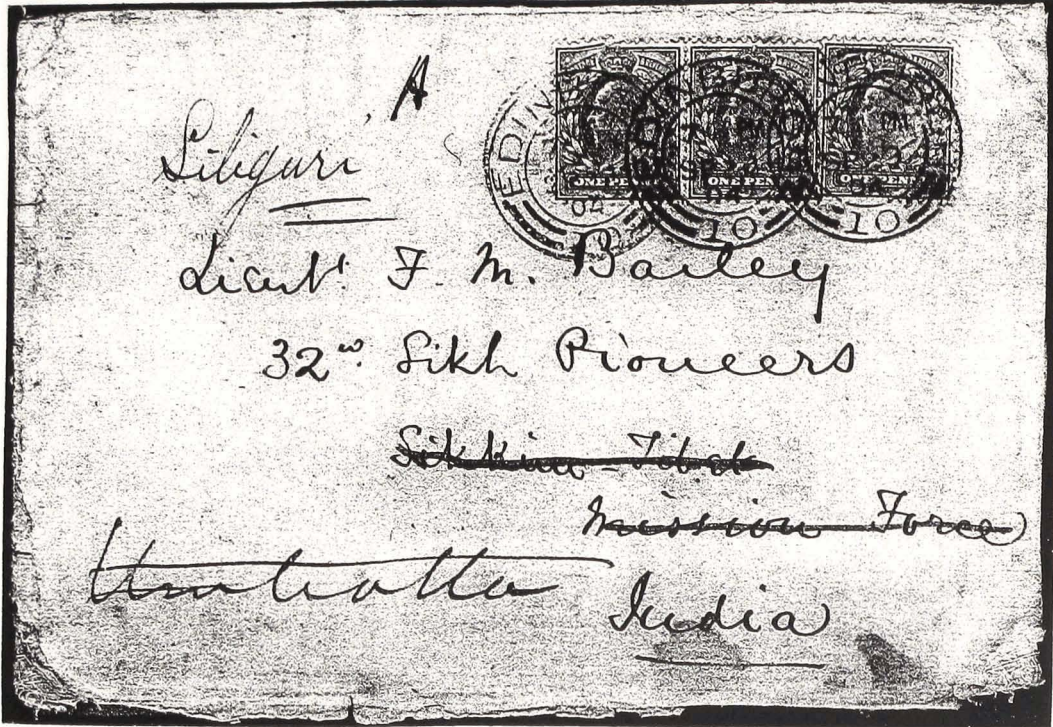 A
Siliguri
EDIN
ONE PENNY ONE PENNY ONE PENNY
04 10 10
Lieut. F. M. Bailey
32nd Sikh Pioneers
Sikkim-Tibet
Mission Force
Umballa
India